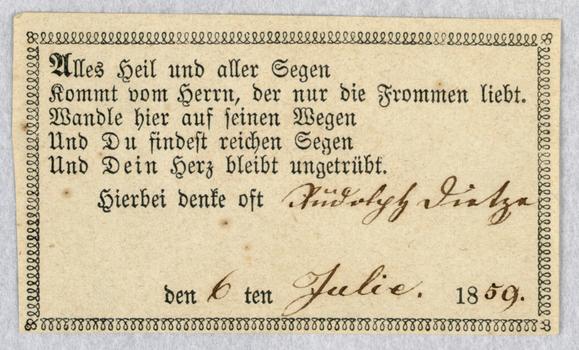 Alles Heil und aller Segen
Kommt vom Herrn, der nur die Frommen liebt.
Wandle hier auf seinen Wegen
Und Du findest reichen Segen
Und Dein Herz bleibt ungetrübt.
Hierbei denke oft Rudolph Dietze
den 6 ten Julie. 1859.